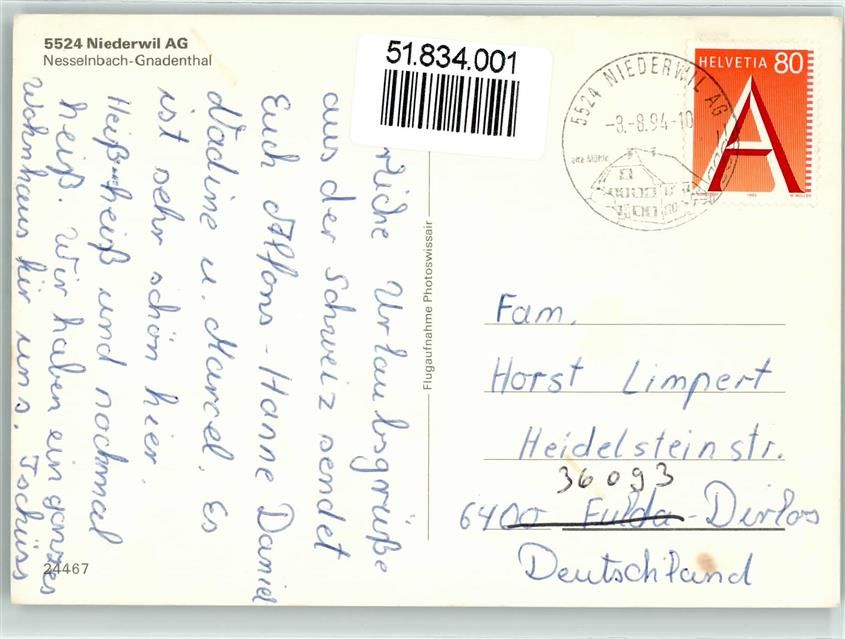 5524 Niederwil AG
Nesselnbach-Gnadenthal
51.834.001
5524 NIEDERWIL AG
-8.-8.94-10
alte Mühle
HELVETIA 80
A
rliche Urlaubsgrüße
aus der Schweiz sendet
Euch Alfons - Hanne Daniel
Nadine u. Marcel. Es
ist sehr schön hier.
Heiß heiß und nochmal
heiß. Wir haben ein ganzes
Wohnhaus für uns. Tschüss
Flugaufnahme Photoswissair
Fam.
Horst Limpert
Heidelsteinstr.
36093
6400 Fulda-Dirlos
Deutschland
24467